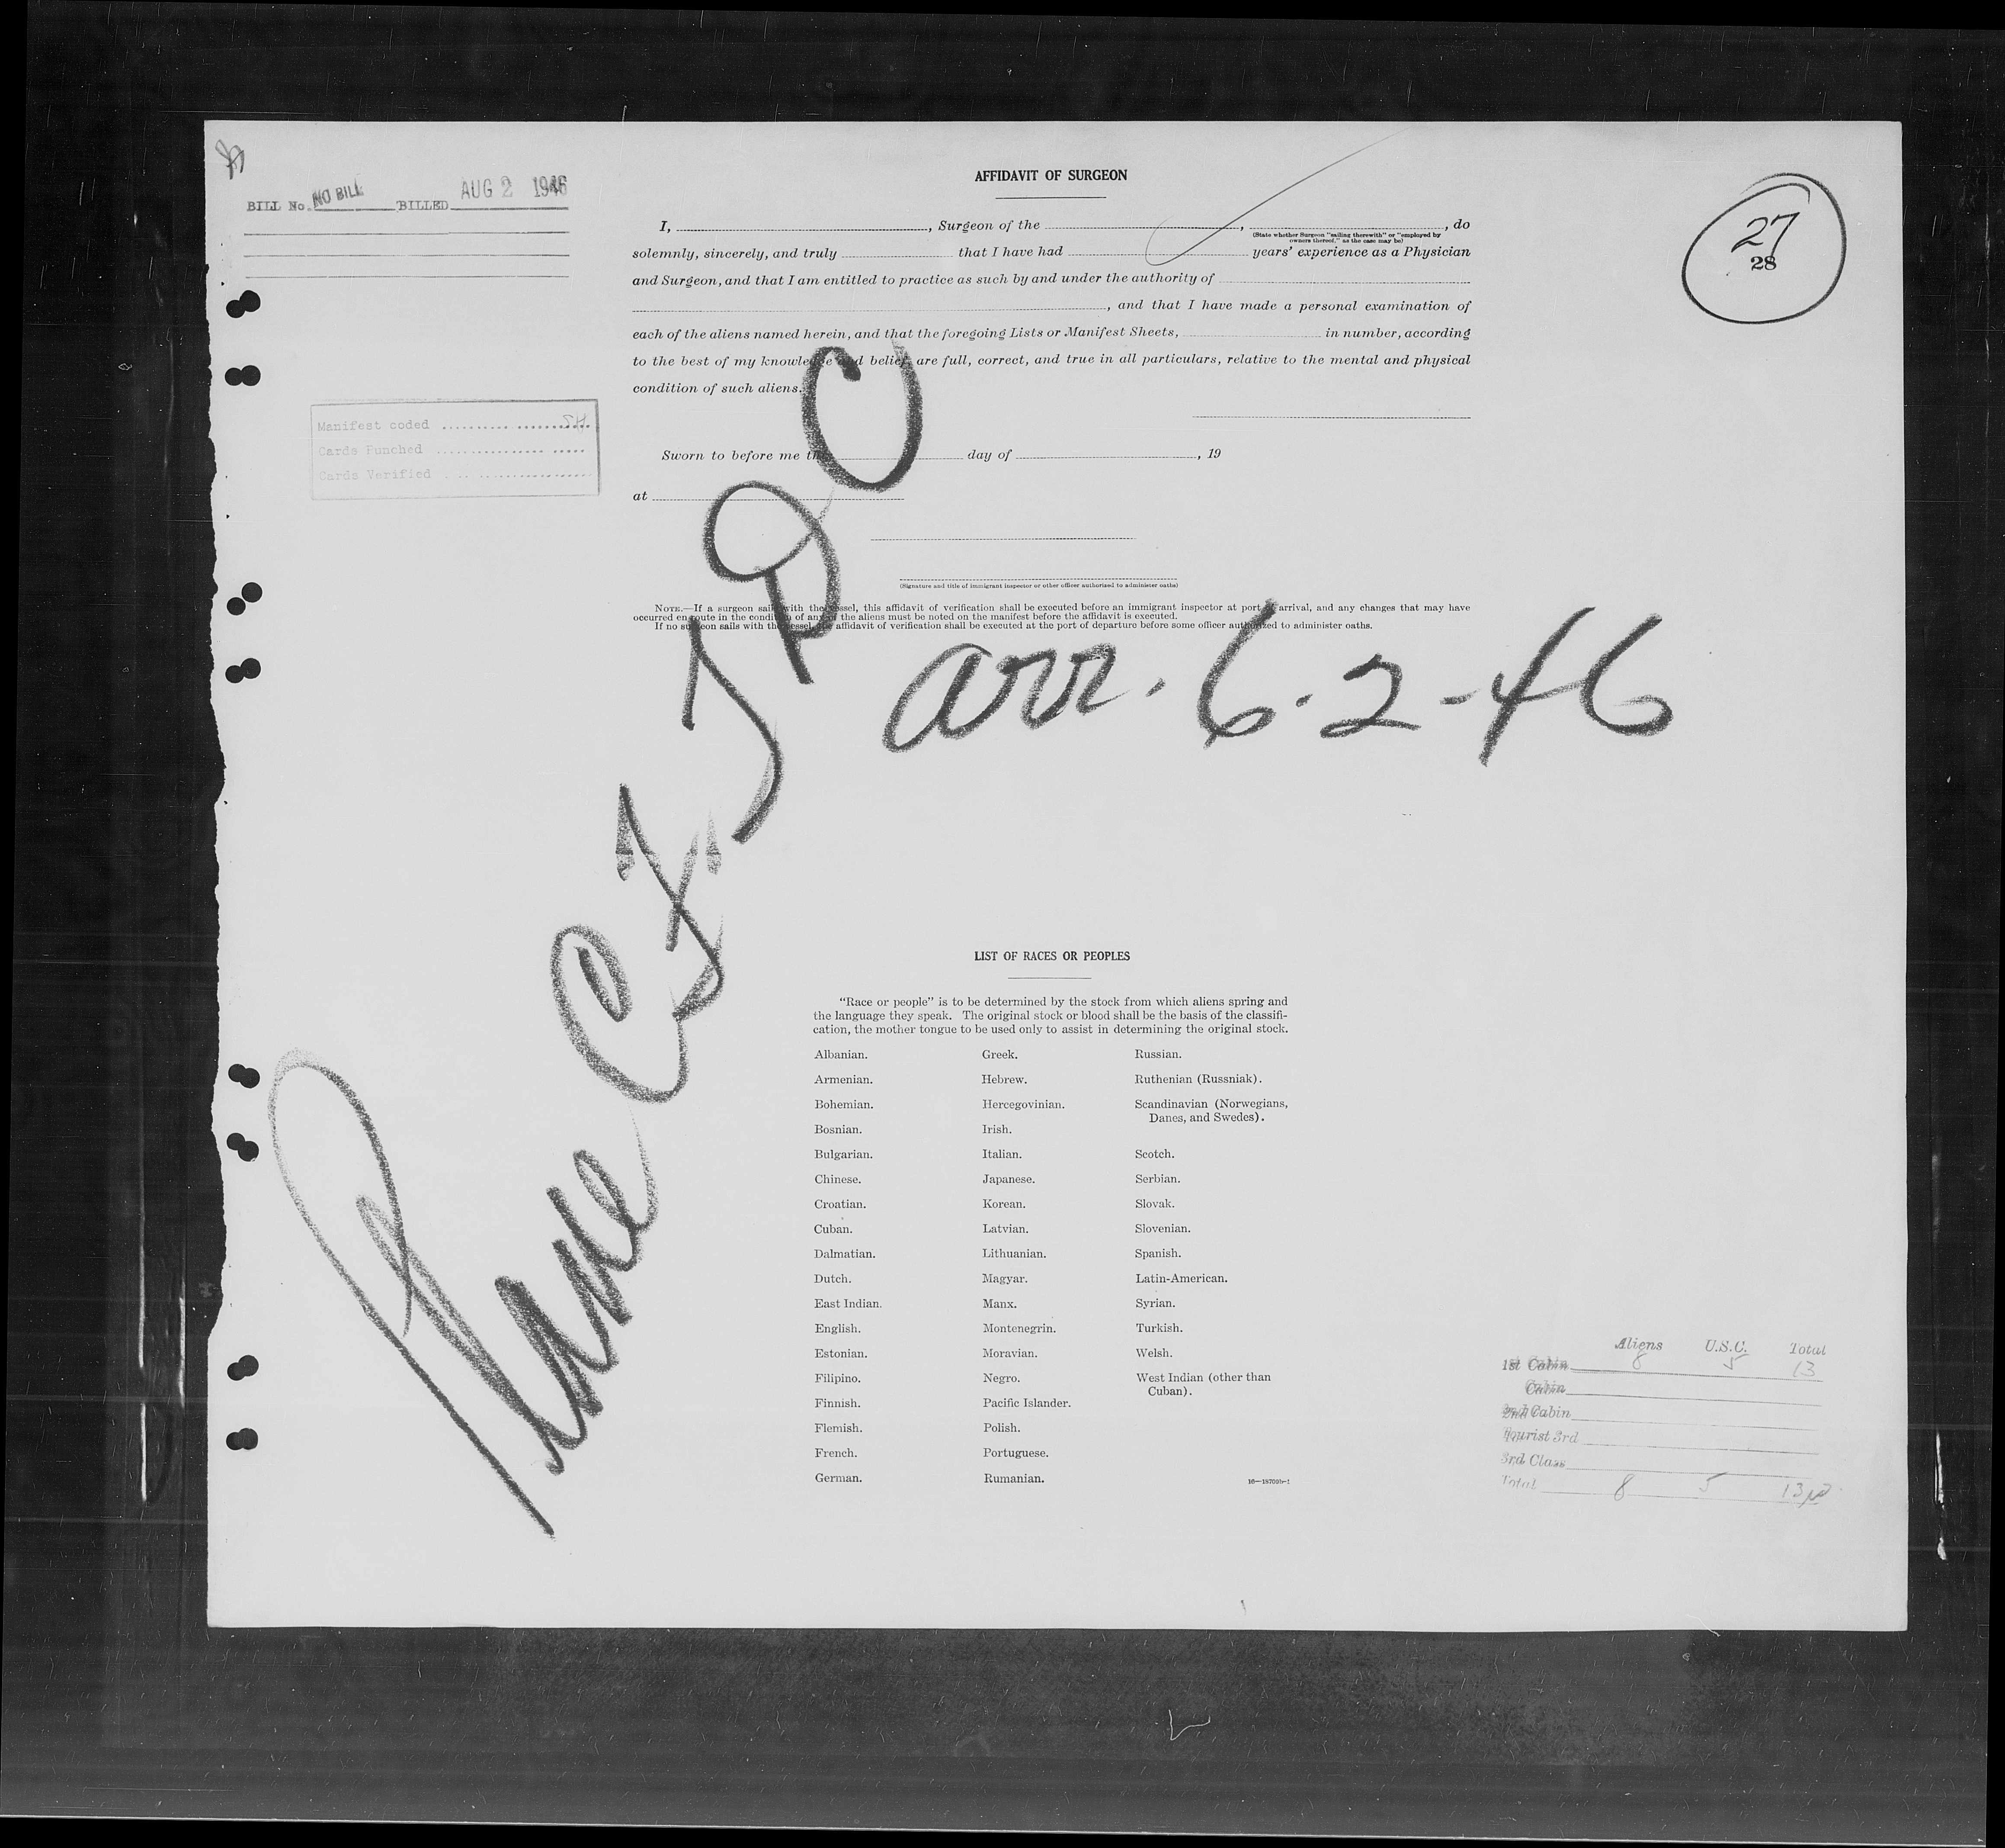 BILL No. NO BILL BILLED AUG 2 1946
27
28
AFFIDAVIT OF SURGEON
I, , Surgeon of the , , do
(State whether Surgeon "sailing therewith" or "employed by
owners thereof," as the case may be)
solemnly, sincerely, and truly that I have had years' experience as a Physician
and Surgeon, and that I am entitled to practice as such by and under the authority of
, and that I have made a personal examination of
each of the aliens named herein, and that the foregoing Lists or Manifest Sheets, in number, according
to the best of my knowledge and belief, are full, correct, and true in all particulars, relative to the mental and physical
condition of such aliens.
Manifest coded
Cards Punched
Cards Verified
Sworn to before me this day of , 19
at
(Signature and title of immigrant inspector or other officer authorized to administer oaths)
NOTE.—If a surgeon sails with the vessel, this affidavit of verification shall be executed before an immigrant inspector at port of arrival, and any changes that may have
occurred en route in the condition of any of the aliens must be noted on the manifest before the affidavit is executed.
If no surgeon sails with the vessel, the affidavit of verification shall be executed at the port of departure before some officer authorized to administer oaths.
arr. 6-2-46
Plane
LIST OF RACES OR PEOPLES
"Race or people" is to be determined by the stock from which aliens spring and
the language they speak. The original stock or blood shall be the basis of the classifi-
cation, the mother tongue to be used only to assist in determining the original stock.
Albanian. Greek. Russian.
Armenian. Hebrew. Ruthenian (Russniak).
Bohemian. Hercegovinian. Scandinavian (Norwegians,
Danes, and Swedes).
Bosnian. Irish.
Bulgarian. Italian. Scotch.
Chinese. Japanese. Serbian.
Croatian. Korean. Slovak.
Cuban. Latvian. Slovenian.
Dalmatian. Lithuanian. Spanish.
Dutch. Magyar. Latin-American.
East Indian. Manx. Syrian.
English. Montenegrin. Turkish.
Estonian. Moravian. Welsh.
Filipino. Negro. West Indian (other than
Cuban).
Finnish. Pacific Islander.
Flemish. Polish.
French. Portuguese.
German. Rumanian.
Aliens U.S.C. Total
1st Cabin 8 5 13
Cabin
2nd Cabin
Tourist 3rd
3rd Class
Total 8 5 13